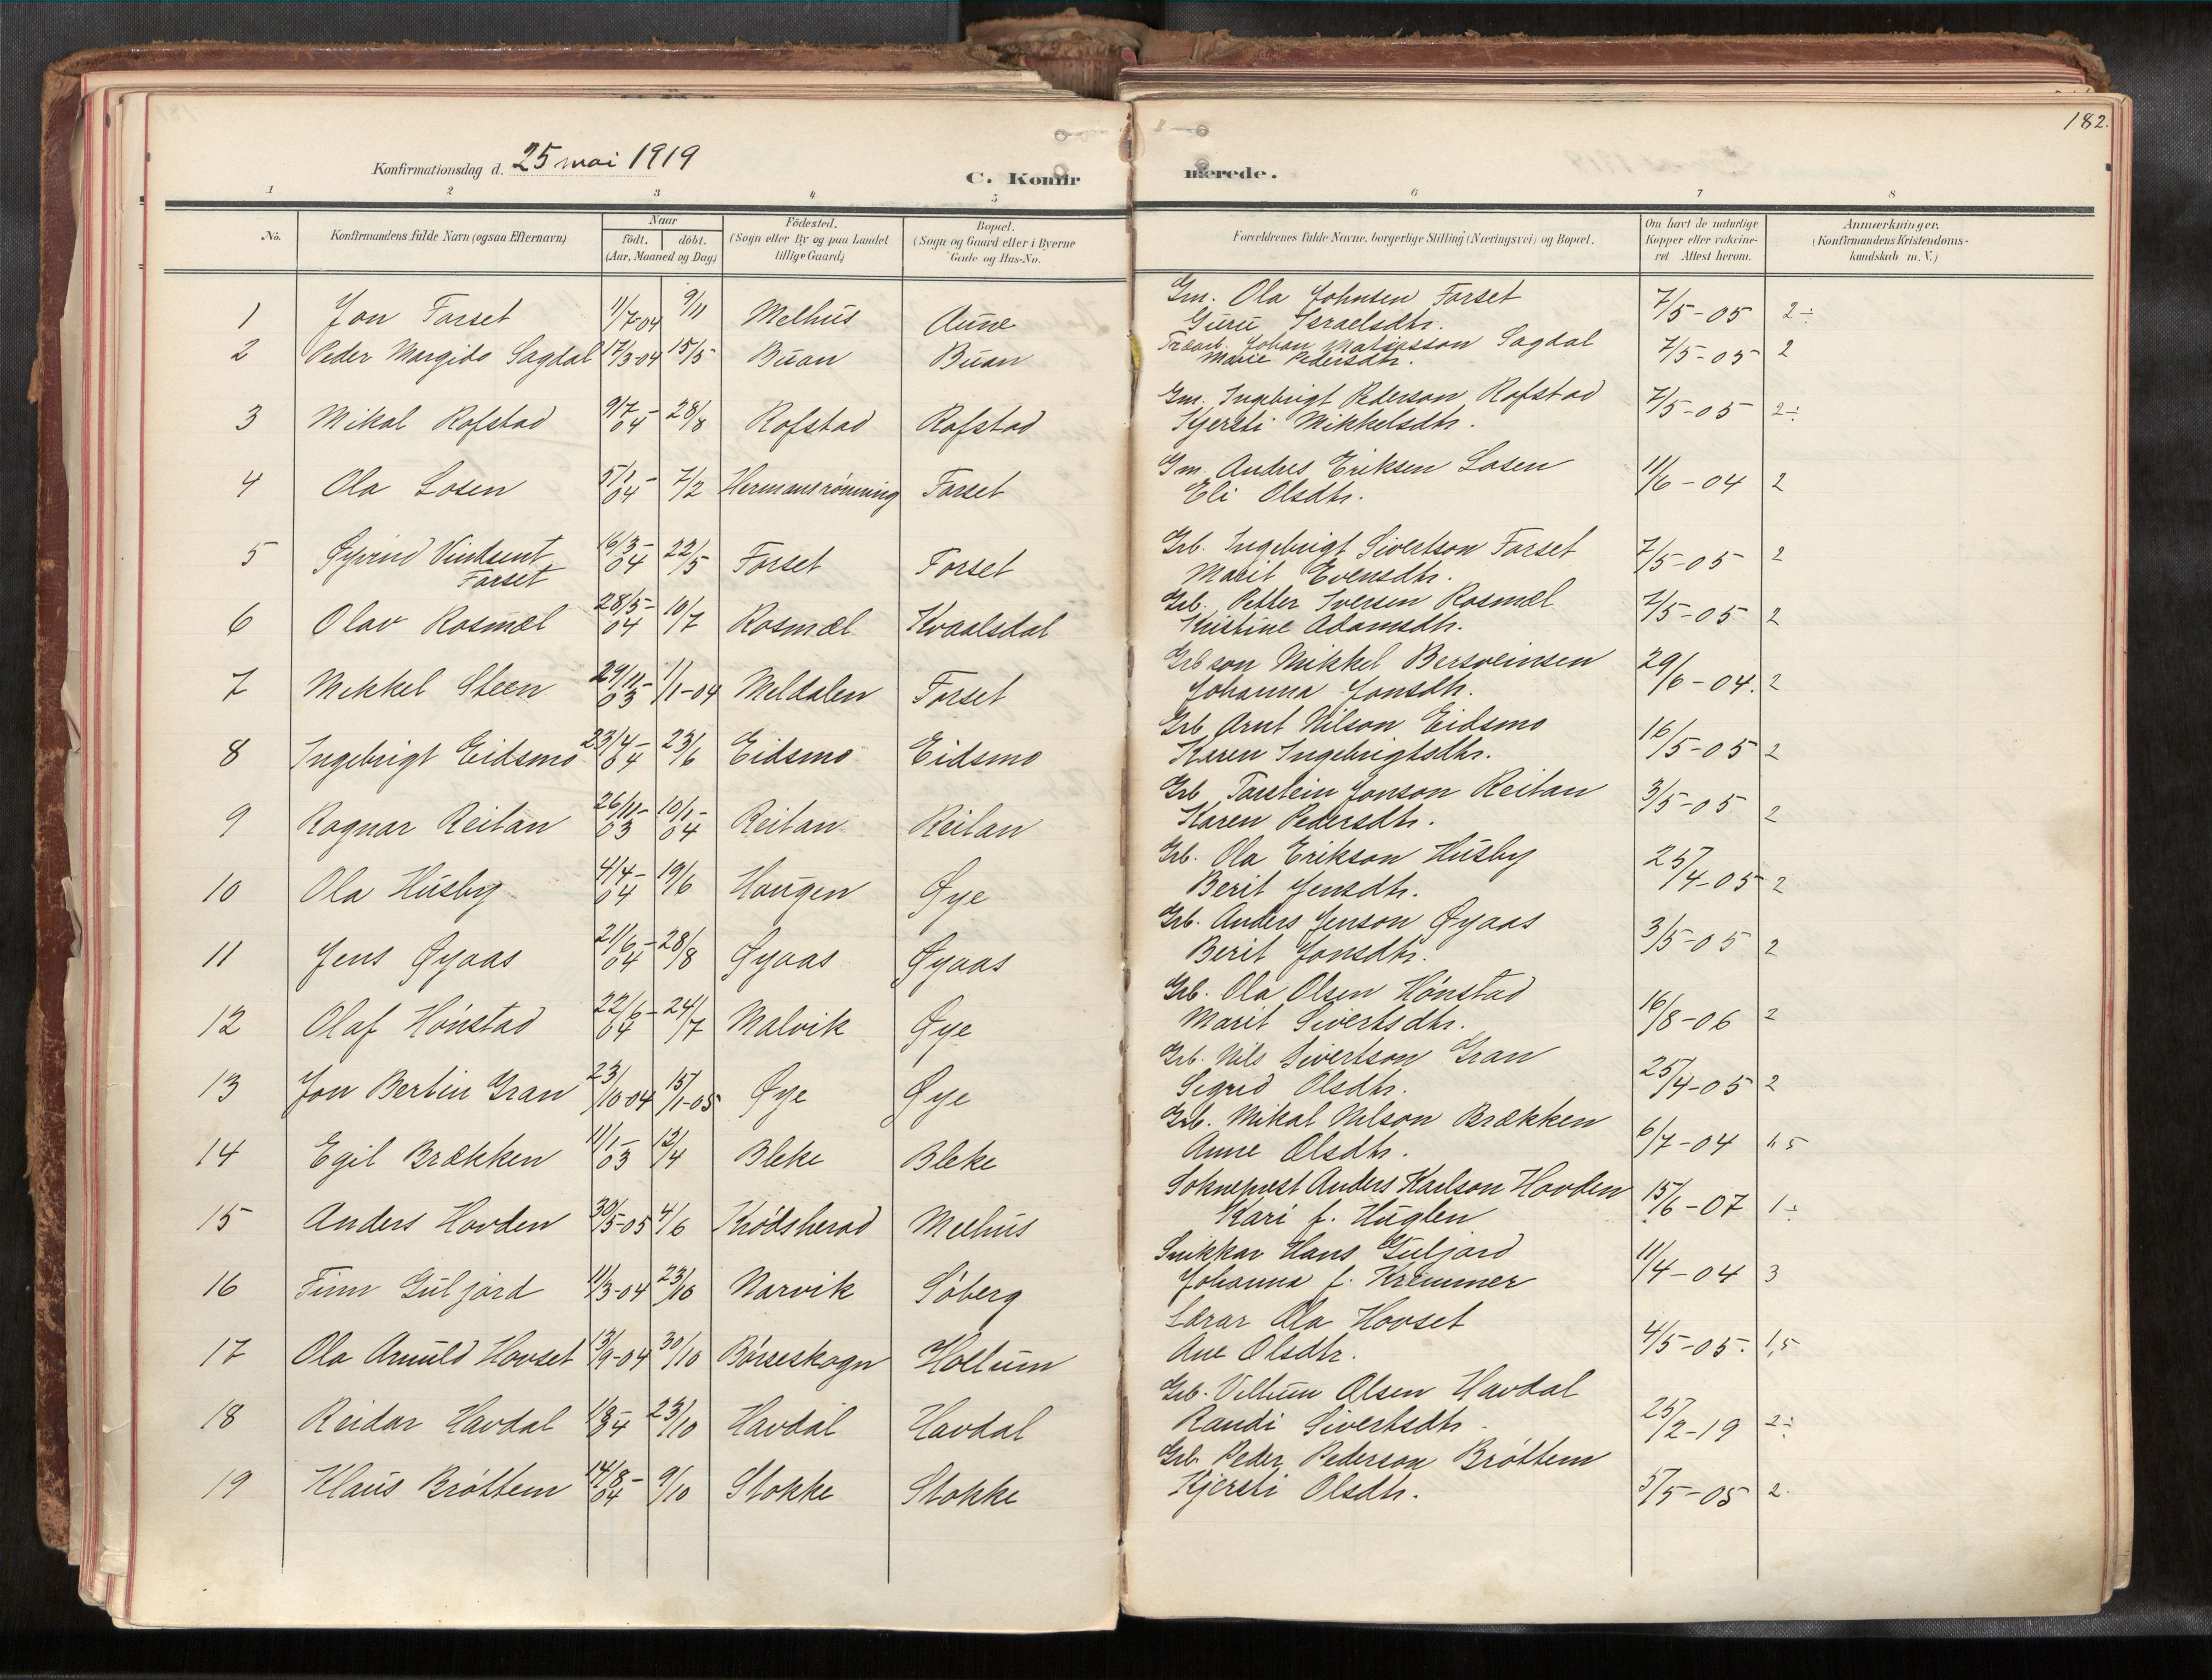 182.
Konfirmationsdag d. 25 mai 1919
C. Konfirmerede.
1 2 3 4 5 6 7 8
No. Konfirmandens fulde Navn (ogsaa Efternavn) Naar født. døbt. (Aar, Maaned og Dag) Fødested. (Sogn eller By og paa Landet tillige Gaard) Bopæl. (Sogn og Gaard eller i Byerne Gade og Hus-No. Forældrenes fulde Navne, borgerlige Stilling (Næringsvei) og Bopæl. Om havt de naturlige Kopper eller vakcineret Attest herom. Anmærkninger. (Konfirmandens Kristendomskundskab m. V.)
1 Jon Forset 11/7-04 9/11 Melhus Aune Gm. Ola Johnsen Forset
Guru Israelsdtr. 7/5-05 2÷
2 Peder Margido Sagdal 17/3-04 15/5 Buan Buan Johan Sagdal
Marie Pedersdtr. 7/5-05 2
3 Mikal Rofstad 9/7-04 28/8 Rofstad Rofstad Gm. Ingebrigt Pederson Rofstad
Kjersti Mikkelsdtr. 7/5-05 2÷
4 Ola Losen 5/1-04 7/2 Hermansrønning Forset Gm. Andres Eriksen Losen
Eli Olsdtr. 11/6-04 2
5 Øyvind Vinksent
Forset 16/3-04 22/5 Forset Forset Grb. Ingebrigt Sivertson Forset
Marit Evensdtr. 7/5-05 2
6 Olav Rosmæl 28/5-04 10/7 Rosmæl Kvaalsdal Grb. Petter Iversen Rosmæl
Kristine Adamsdtr. 7/5-05 2
7 Mikkel Steen 29/11-03 1/1-04 Meldalen Forset Grb son Mikkel Bersveinsen
Johanna Jonsdtr. 29/6-04. 2
8 Ingebrigt Eidsmo 23/4-04 23/6 Eidsmo Eidsmo Grb Arnt Nilson Eidsmo
Keren Ingebrigtsdtr. 16/5-05 2
9 Ragnar Reitan 26/11-03 10/1-04 Reitan Reitan Grb Torstein Jonson Reitan
Karen Pedersdtr. 3/5-05 2
10 Ola Husby 4/4-04 19/6 Haugen Øye Grb. Ola Erikson Husby
Berit Jensdtr. 25/4-05 2
11 Jens Øyaas 21/6-04 28/8 Øyaas Øyaas Grb. Anders Jenson Øyaas
Berit Jonsdtr. 3/5-05 2
12 Olaf Hønstad 22/6-04 24/7 Malvik Øye Grb. Ola Olsen Hønstad
Marit Sivertsdtr. 16/8-06 2
13 Jon Bertin Gran 23/10-04 15/1-05 Øye Øye Grb. Nils Sivertson Gran
Sigrid Olsdtr. 25/4-05 2
14 Egil Brækken 11/1-03 12/4 Bleke Bleke Grb. Mikal Nilson Brækken
Anne Olsdtr. 6/7-04 1,5
15 Anders Hovden 30/5-05 4/6 Krødsherad Melhus Sokneprest Anders Karlson Hovden
Kari f. Huglen 15/6-07 1÷
16 Finn Guljord 11/3-04 23/10 Narvik Søberg Snikkar Hans Guljord
Johanna f. Kremmer 11/4-04 3
17 Ola Arnuld Hovset 13/9-04 30/10 Børseskogn Hollum Lærar Ola Hovset
Ane Olsdtr. 4/5-05. 1,5
18 Reidar Havdal 23/10 Havdal Havdal Grb. Villum Olsen Havdal
Randi Sivertsdtr 25/2-19 2÷
19 Klaus Brøttem 14/8-04 9/10 Stokke Stokke Grb. Peder Pederson Brøttem
Kjersti Olsdtr. 5/5-05 2.